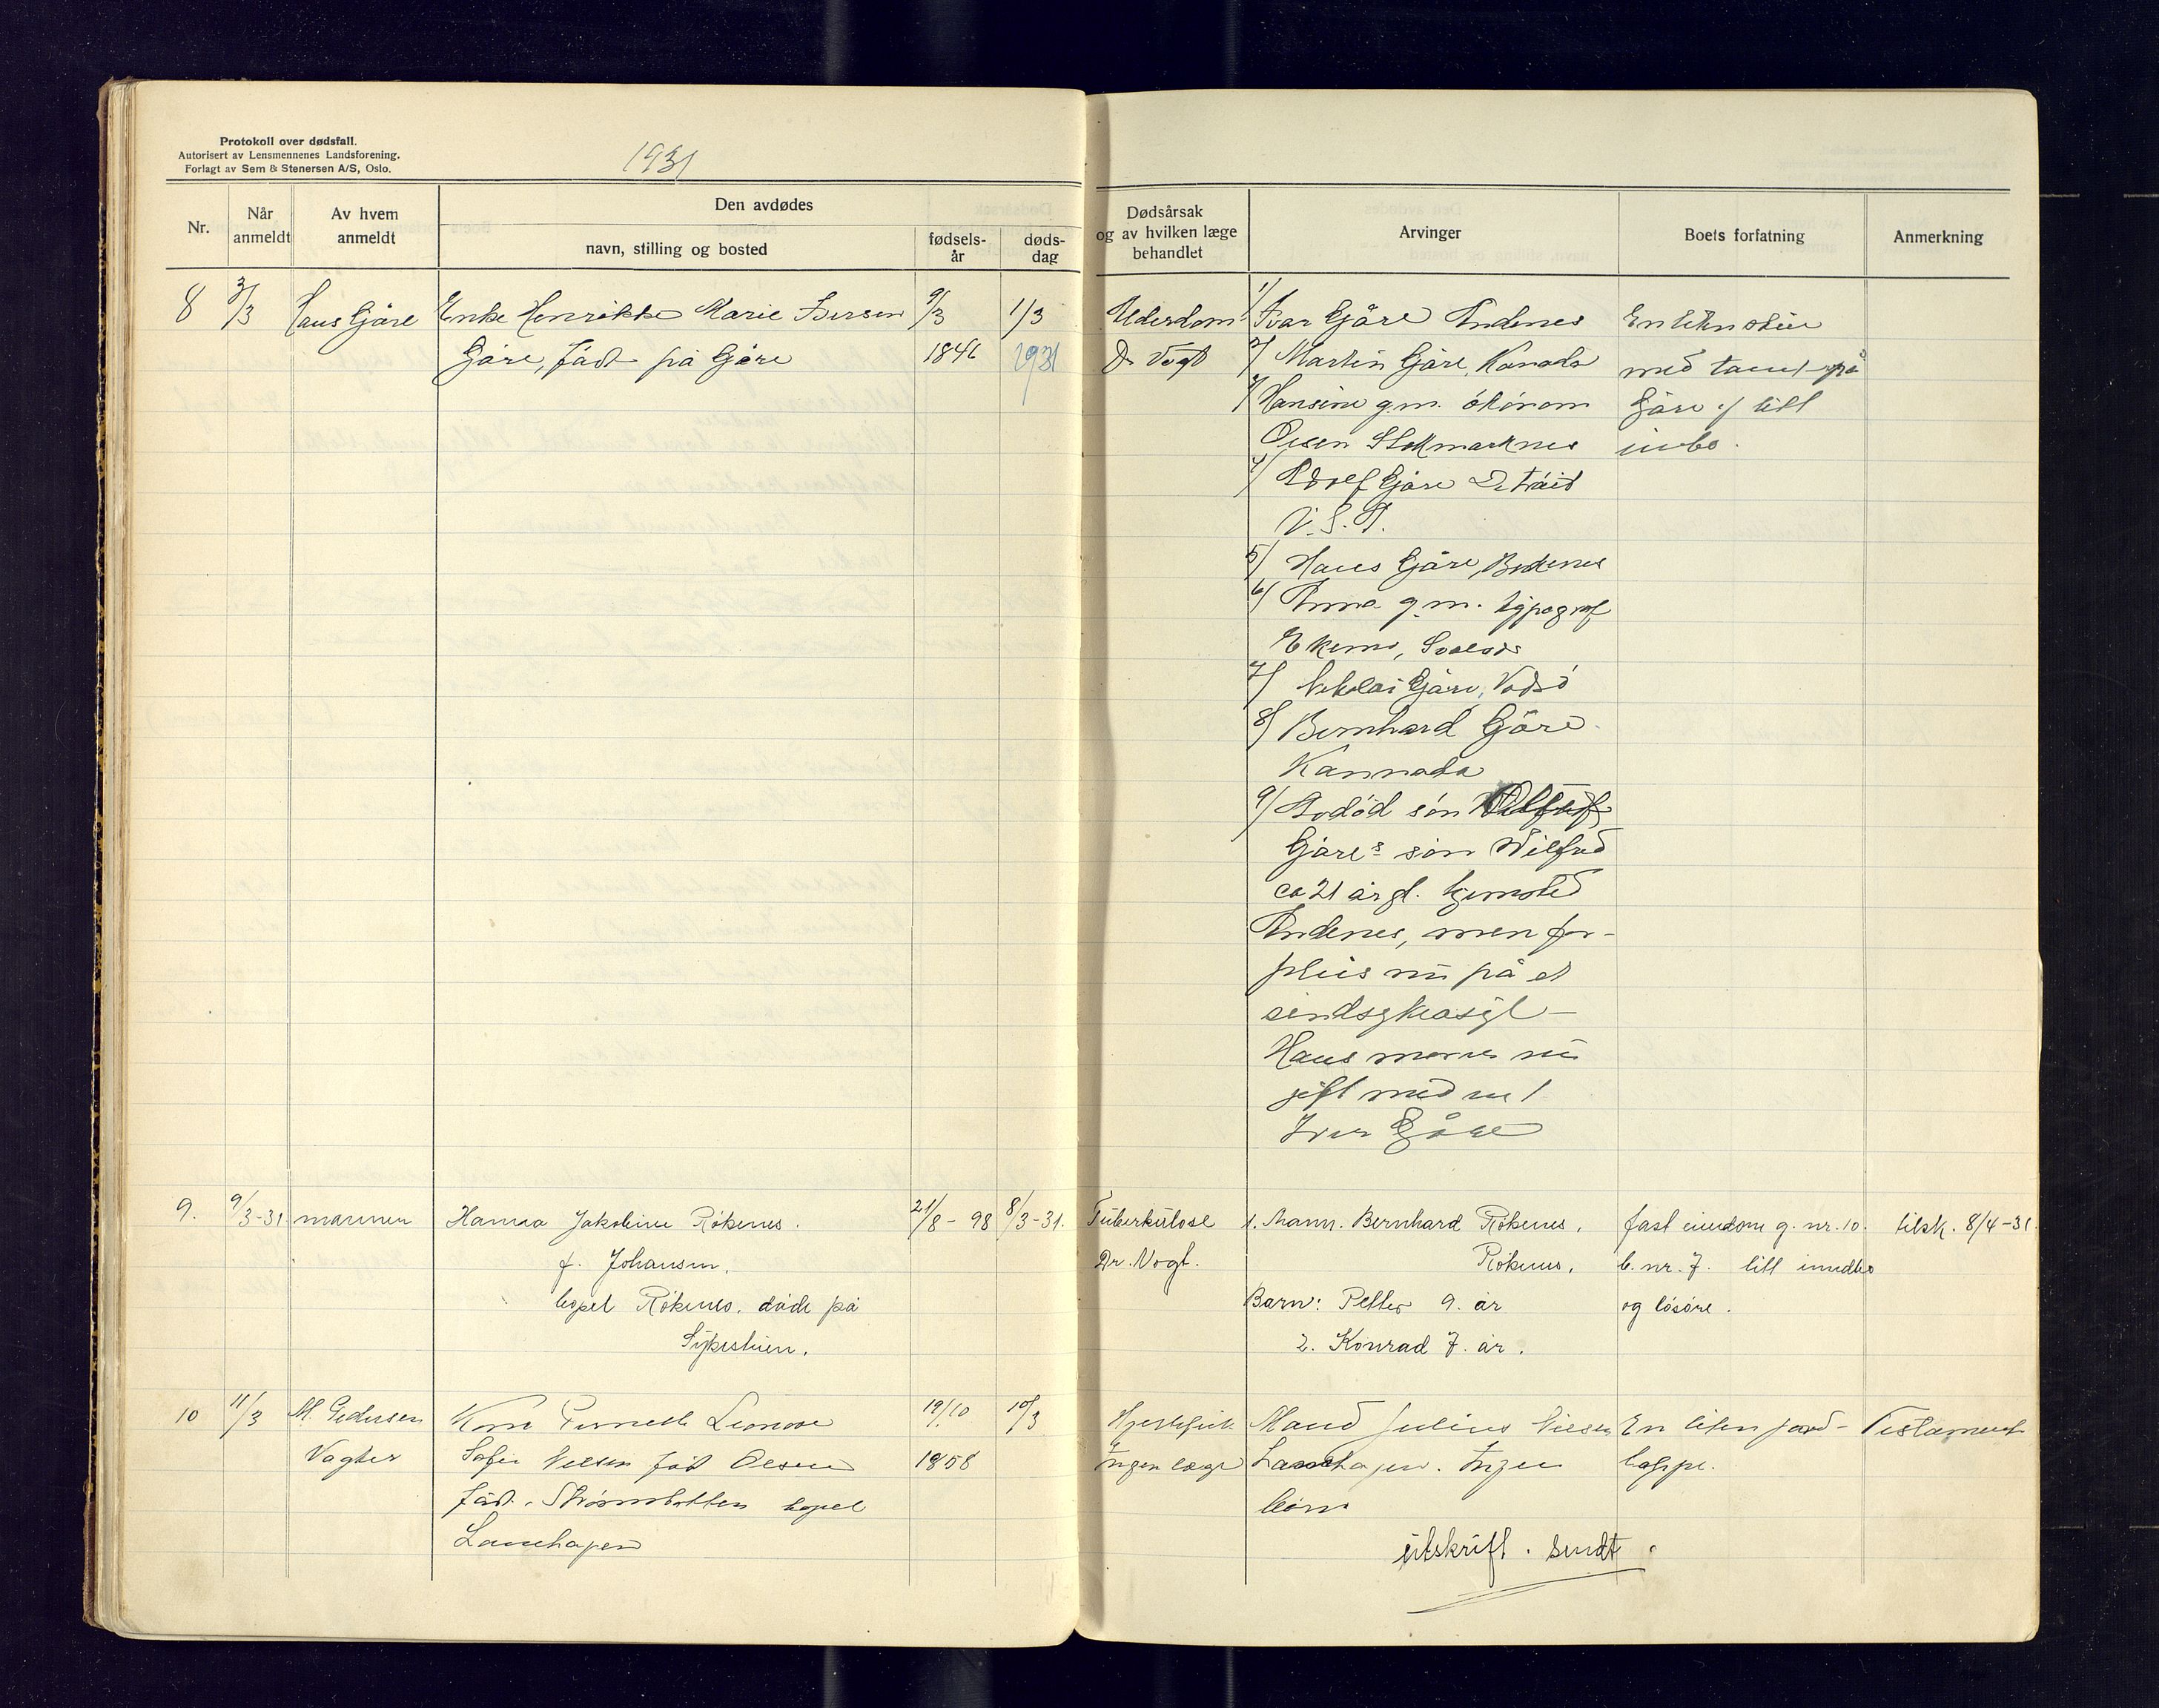 Protokoll over dødsfall.
Autorisert av Lensmennenes Landsforening.
Forlagt av Sem & Stenersen A/S, Oslo.
1931
Nr.
Når anmeldt
Av hvem anmeldt
Den avdødes
navn, stilling og bosted
fødsels-år
døds-dag
Dødsårsak og av hvilken læge behandlet
Arvinger
Boets forfatning
Anmerkning
8 3/3 Hans Gåre Enke Henrikke Marie Iversen 9/3 1/3
Gåre, född på Gåre 1846 1931
Alderdom
Dr Vogt
1/ Ivar Gåre Andenes
2/ Martin Gåre, Kanada
3/ Hansine g.m. ökonom
Olsen Stokmarknes
4/ Adolf Gåre Detroid
U.S.A.
5/ Hans Gåre, Bodenes
6/ Anna g.m. typograf
7/ Nikolai Gåre, Vadsö
8/ Bernhard Gåre
Kannada
9/ Avdöd sön
Gåres sön Wilfred
ca 21 år gl. hjemsted
Andenes, men for-
pleies nu på et
sindsykeasyl –
Hans mor er nu
gift med nr 1
Ivar Gåre
En liten stue
med tomt på
Gåre og litt
inbo.
9. 9/3-31 mannen Hanna Jakobine Rökenes. 21/8-98 8/3-31.
f. Johansen,
bopel Rökenes, döde på
Sykestuen.
Tuberkulose
Dr. Vogt.
1. Mann. Bernhard Rökenes,
Rökenes,
Barn: Petter 9. år
2. Konrad 7. år.
fast eiendom g. nr. 10.
b. nr. 7. litt innebo
og lösöre.
tilsk. 8/4-31.
10 11/3 M. Pedersen Kone Leonore 19/10 10/3
Vagter Sofie Nilsen föd Olsen 1858
föd. Strömsbotten bopel
Lanehagen
Ingen læge
Mand Julius Nilsen
Lanehagen. Ingen
börn
En liten jord-
lappe.
Testament
utskrift. sendt.